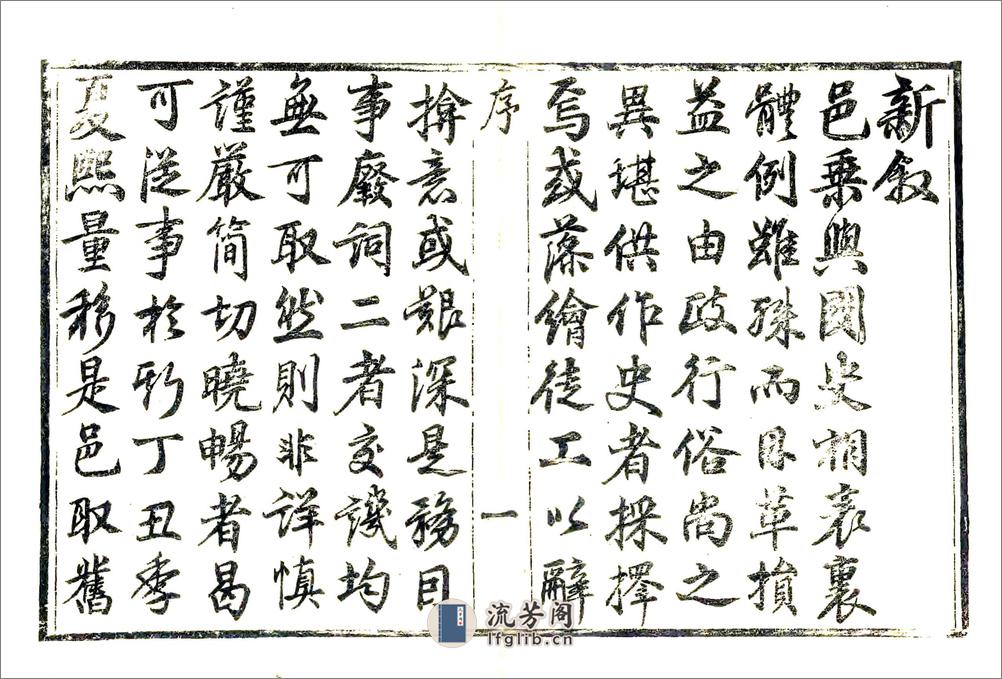 新叙
邑乗與國史相表裏
體例雖殊而因革損
益之由政行俗尚之
異堪供作史者採擇
焉或藻繪徒工以辭
序
一
揜意或艱深是務因
事廢詞二者交譏均
無可取然則非詳慎
謹嚴簡切曉暢者曷
可從事於斯丁丑季
夏熙量移是邑取舊
流芳阁
lfglib.cn